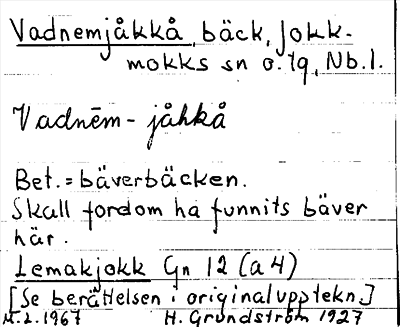 Vadnemjåkkå, bäck, Jokk-
mokks sn o. tg, Nb. l.
Vadnēm - jåhkå
Bet. = bäverbäcken.
Skall fordom ha funnits bäver
här.
Lemakjokk Gn 12 (a4)
[Se berättelsen i originaluppteckn.]
M. 2. 1967 H. Grundström 1927